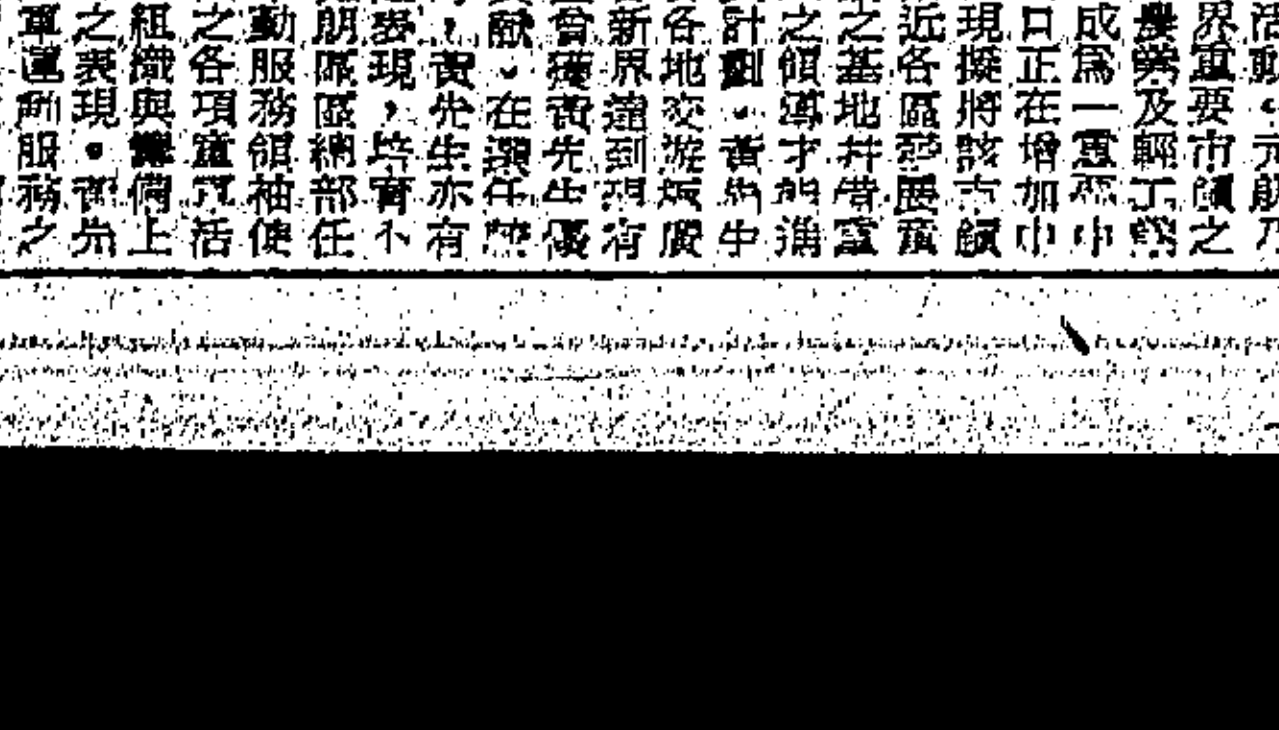 活動。元朗乃
界重要市鎮之
農業及輕工業
成為一重要中
口正在增加中
現擬將該市鎮
近各區發展爲
之基地并借重
之領導才能進
計劃。黃先生
各地交游娠廣
新界達到現有
曾獲黃先生優
献。在選任
，黃先生亦有
現，培育不
朗區區網部任
動服務領袖使
之各項童軍活
組織與備上
之表現。黃先
軍運動服務之